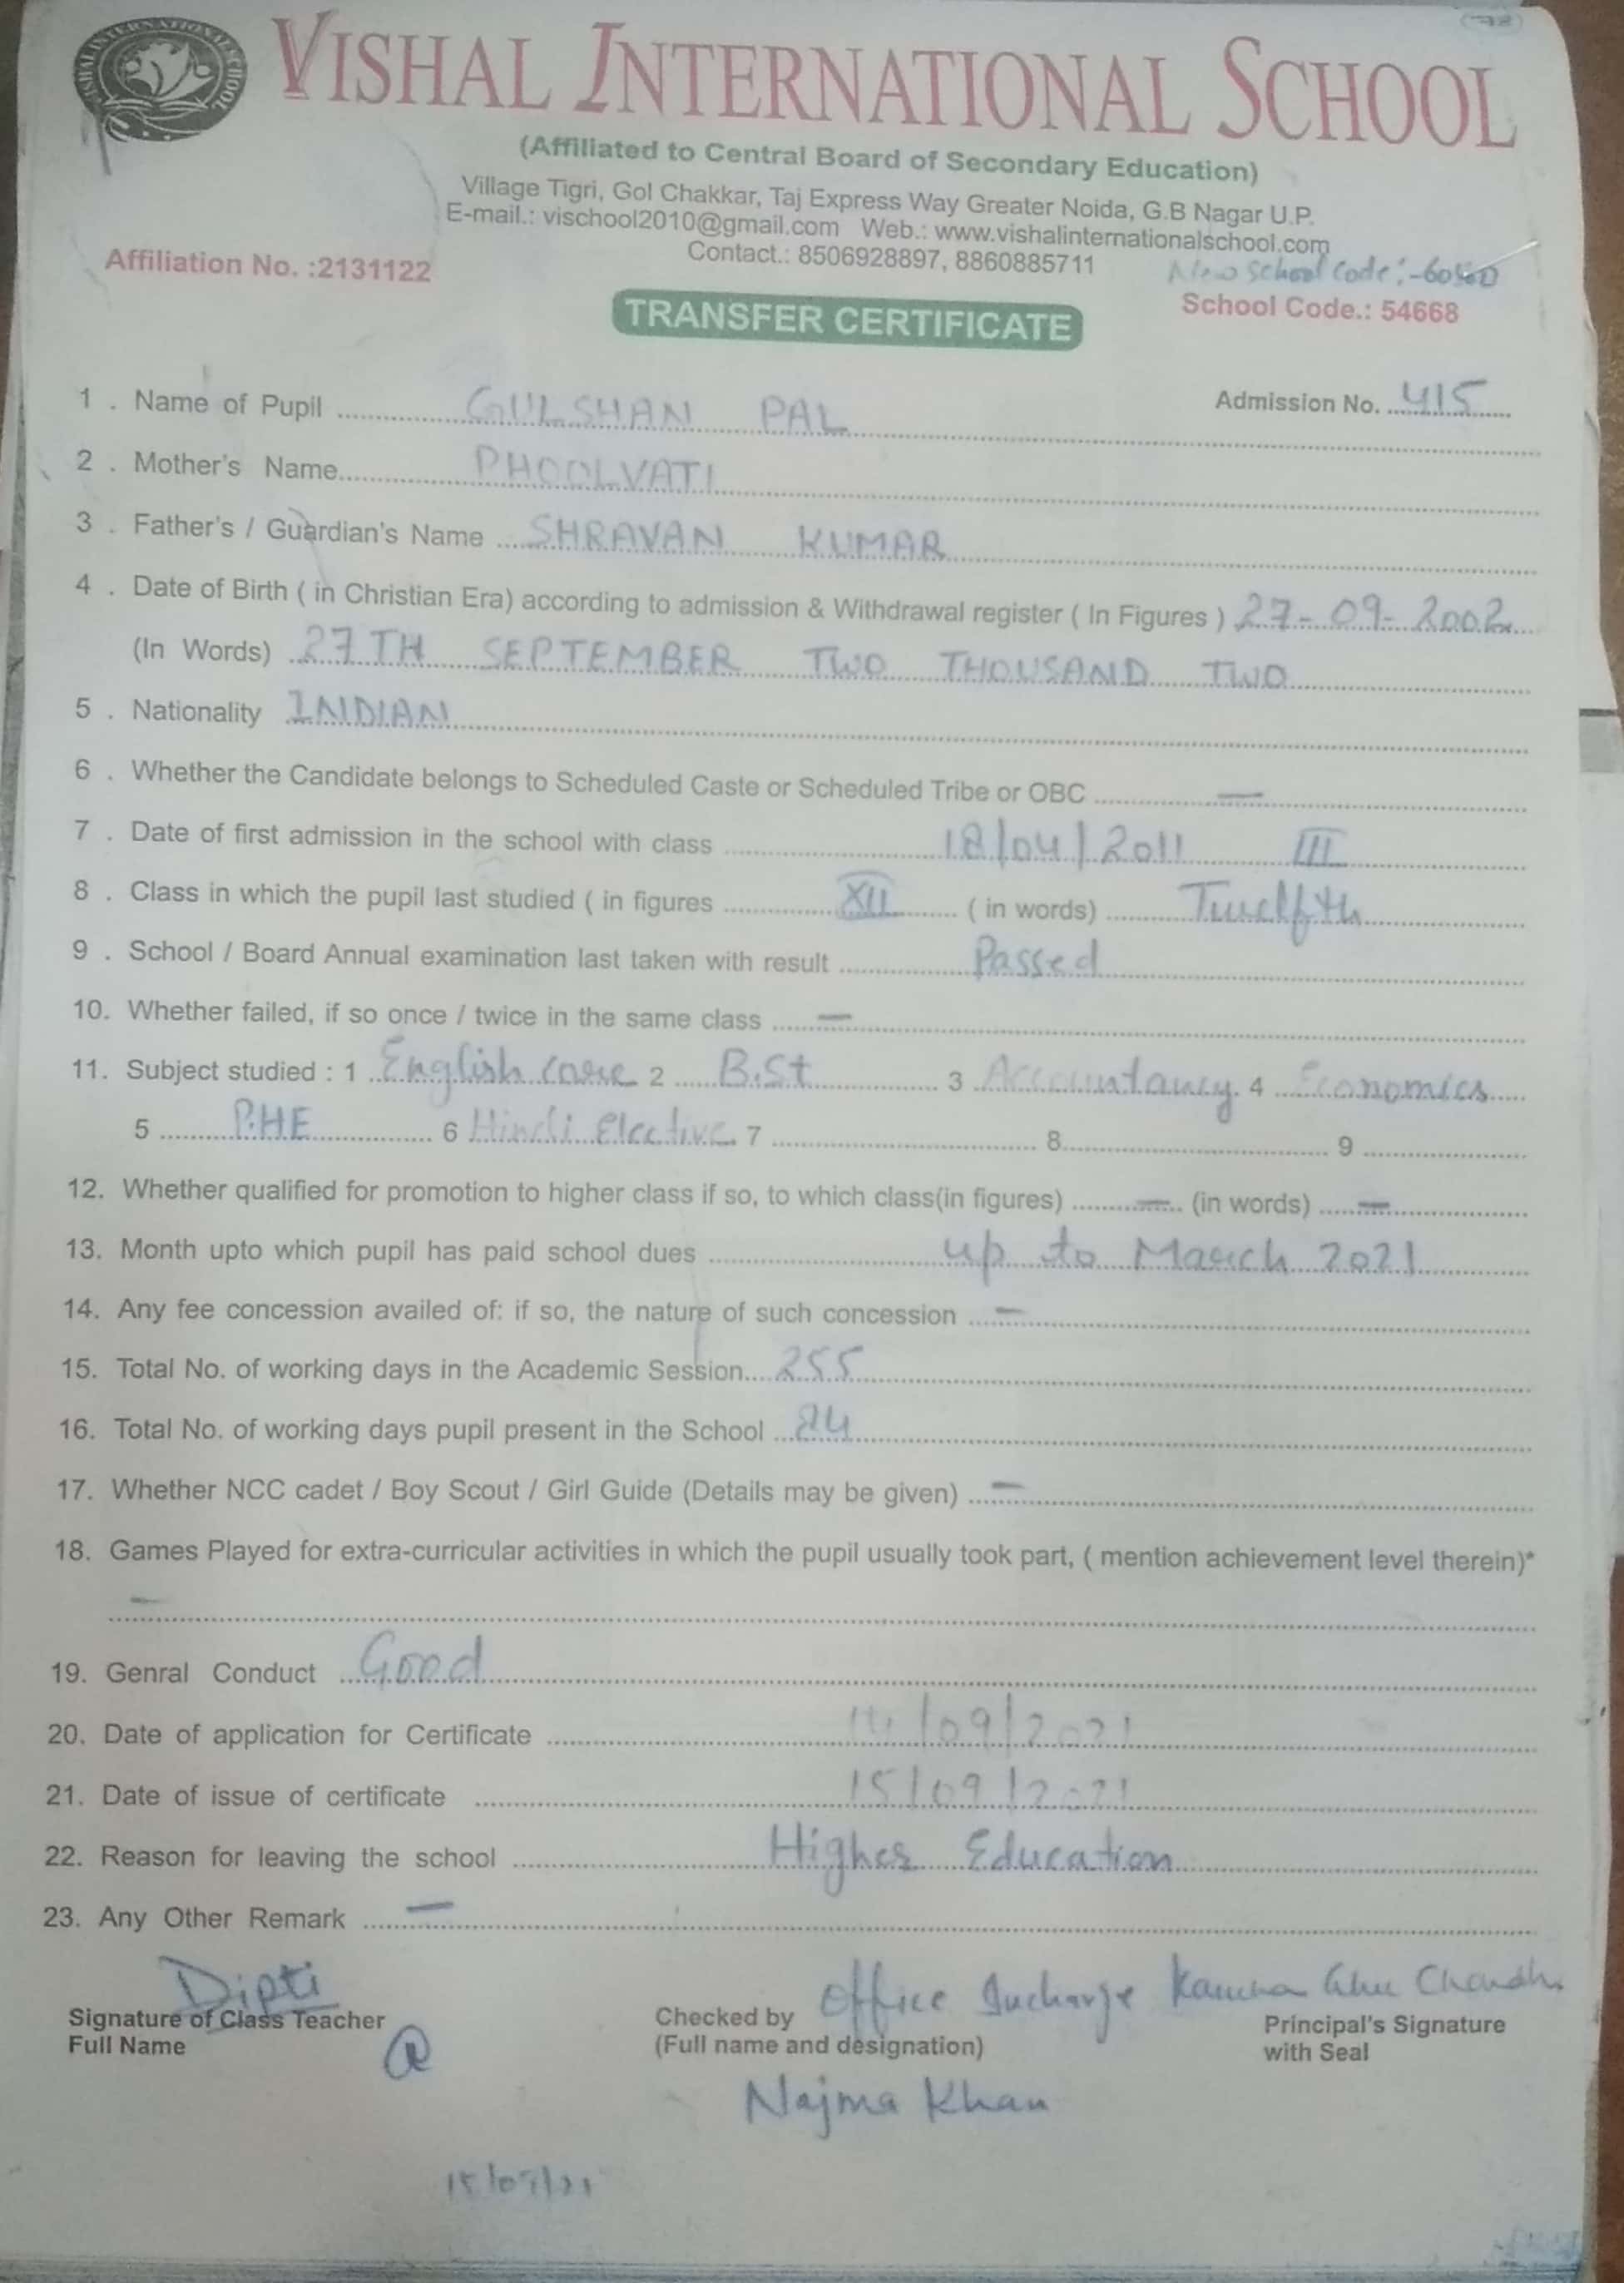 VISHAL INTERNATIONAL SCHOOL
VISHAL INTERNATIONAL SCHOOL
(Affiliated to Central Board of Secondary Education)
Village Tigri, Gol Chakkar, Taj Express Way Greater Noida, G.B Nagar U.P.
E-mail.: vischool2010@gmail.com Web.: www.vishalinternationalschool.com
Contact.: 8506928897, 8860885711
Affiliation No. :2131122
New School Code :-
School Code.: 54668
TRANSFER CERTIFICATE
1 . Name of Pupil GULSHAN PAL Admission No. 415
2 . Mother's Name PHOOLVATI
3 . Father's / Guardian's Name SHRAVAN KUMAR
4 . Date of Birth ( in Christian Era) according to admission & Withdrawal register ( In Figures ) 27-09-2002
(In Words) 27TH SEPTEMBER TWO THOUSAND TWO
5 . Nationality INDIAN
6 . Whether the Candidate belongs to Scheduled Caste or Scheduled Tribe or OBC —
7 . Date of first admission in the school with class 18/04/2011 III
8 . Class in which the pupil last studied ( in figures XII ( in words) Twelfth
9 . School / Board Annual examination last taken with result Passed
10. Whether failed, if so once / twice in the same class —
11. Subject studied : 1 English Core 2 B.St 3 Accountancy 4 Economics
5 P.HE 6 Hindi Elective 7 8 9
12. Whether qualified for promotion to higher class if so, to which class(in figures) — (in words) —
13. Month upto which pupil has paid school dues up to March 2021
14. Any fee concession availed of: if so, the nature of such concession —
15. Total No. of working days in the Academic Session 255
16. Total No. of working days pupil present in the School
17. Whether NCC cadet / Boy Scout / Girl Guide (Details may be given) —
18. Games Played for extra-curricular activities in which the pupil usually took part, ( mention achievement level therein)*
—
19. Genral Conduct Good
20. Date of application for Certificate 14/09/2021
21. Date of issue of certificate 15/09/2021
22. Reason for leaving the school Higher Education
23. Any Other Remark —
Dipti Office Incharge
Signature of Class Teacher Checked by Principal's Signature
Full Name (Full name and designation) with Seal
Najma Khan